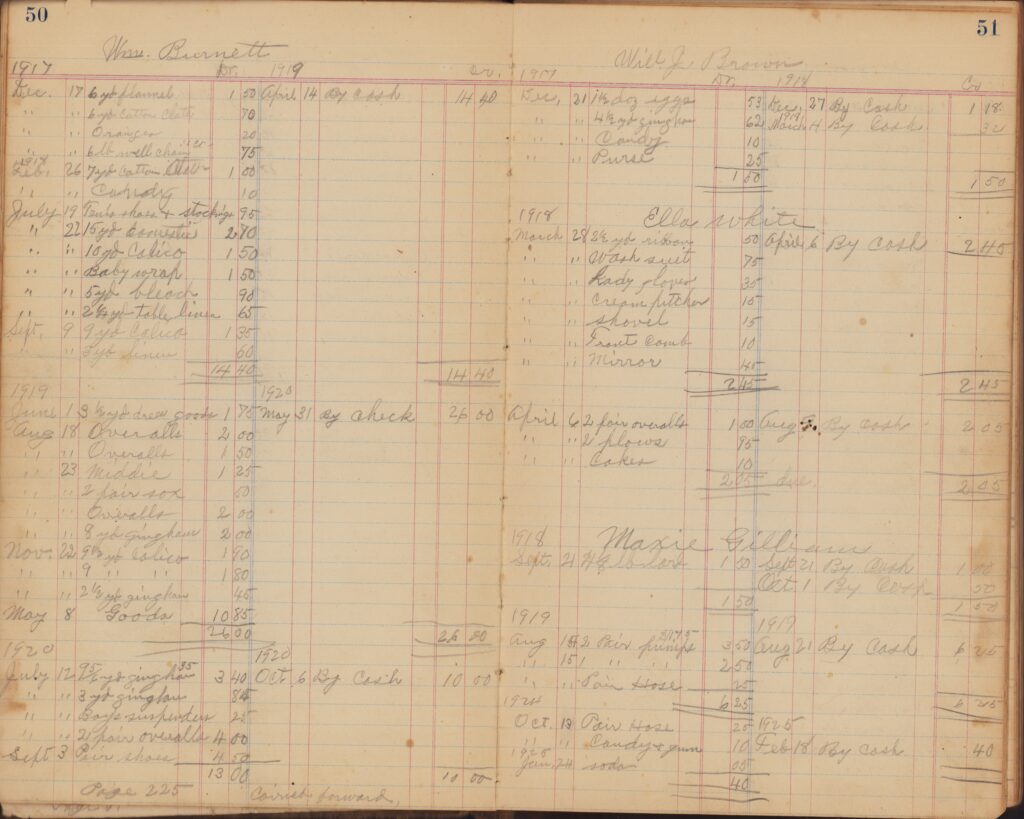 50
Wm. Burnett
1917 Dr. 1919 Cr.
Dec. 17 6 yd flannel 1 50 April 14 By Cash 14 40
" " 6 yd Cotton Cloth 70
" " Oranges 20
" " 6 lb well chain 75
1918
Feb. 26 7 yd Cotton 1 00
" " Candy 10
July 19 shoes + stockings 95
" 22 15 yd domestic 2 70
" " 10 yd Calico 1 50
" " Baby wrap 1 50
" " 5 yd bleach 90
" " 2 1/2 yd table linen 65
Sept. 9 9 yd Calico 1 35
" " yd linen 60
14 40 14 40
1919 1920
June 1 3 1/2 yd dress goods 1 75 May 31 By Check 26 00
Aug 18 Overalls 2 00
" " Overalls 1 50
" 23 Middie 1 25
" " 2 pair sox 50
" " Overalls 2 00
" " 8 yd gingham 2 00
Nov. 22 9 1/2 yd Calico 1 90
" " 9 " " 1 80
" " 2 1/2 yd gingham 45
May 8 Goods 10 85
26 00 26 00
1920 1920
July 12 yd gingham 35 3 40 Oct. 6 By Cash 10 00
" " 3 yd gingham 85
" " Boys suspenders 25
" " 2 pair overalls 4 00
Sept 3 Pair shoes 4 50
13 00 10 00
Page 225 Carried forward,
51
Will J. Brown
1917 Dr. 1918 Cr.
Dec. 21 1 1/2 doz eggs 53 Dec. 27 By Cash 1 18
" " 4 1/2 yd gingham 62 1919 March 4 By Cash 32
" " Candy 10
" " Purse 25
1 50 1 50
1918 Ella White
March 28 2 1/2 yd ribbon 50 April 6 By Cash 2 45
" " Wash suit 75
" " Lady gloves 35
" " Cream pitcher 15
" " Shovel 15
" " Front Comb 10
" " Mirror 45
2 45 2 45
April 6 2 pair overalls 1 00 Aug By Cash 2 05
" " 2 plows 95
" " Cakes 10
2 05 due. 2 05
1918 Maxie Gilliam
Sept. 21 1 50 Sept 21 By Cash 1 00
Oct. 1 By 50
1 50 1 50
1919 1919
Aug 15 2 Pair pumps 3 50 Aug 21 By Cash 6 25
" 15 1 " " 2 50
" " Pair Hose 25
6 25 6 25
1924
Oct. 13 Pair Hose 25 1925
" " Candy & gum 10 Feb 18 By Cash 40
1925
Jan. 24 soda 05
40